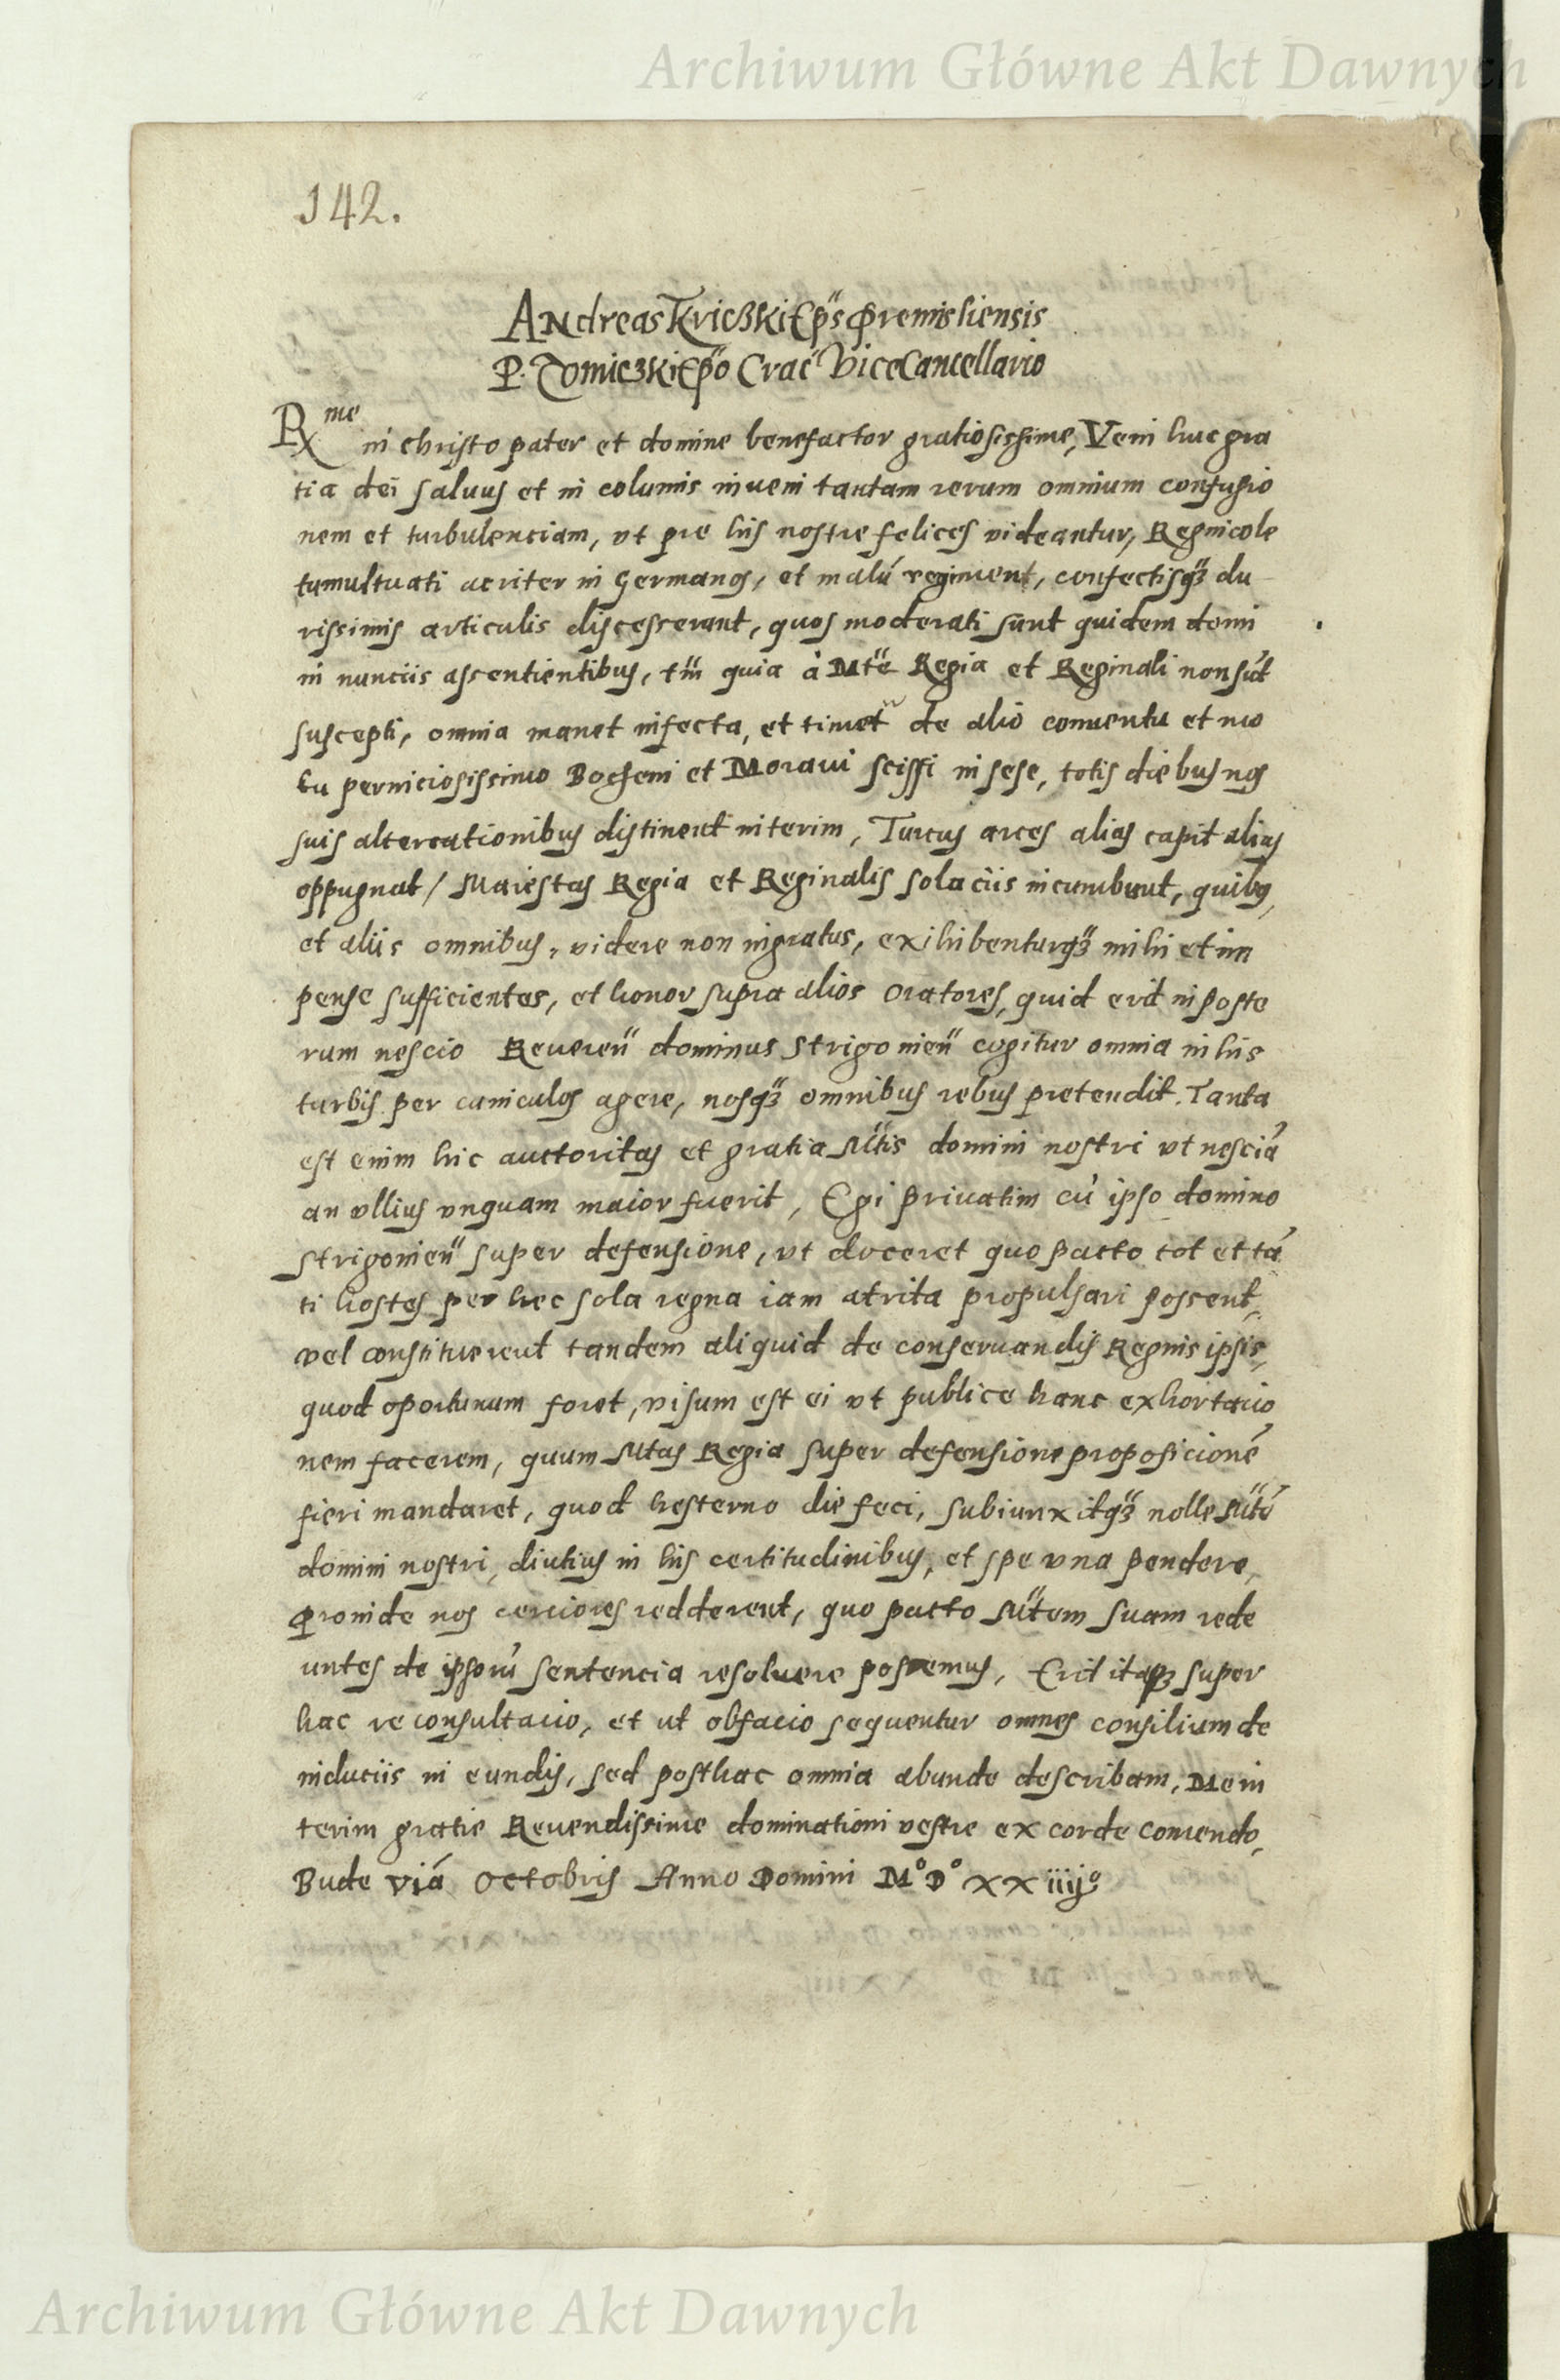 Archiwum Główne Akt Dawnych
142.
Andreas Kriczki Ep̃s Premisliensis
P. Tomiczki Ep̃o Crac̃ Vicecancellario
Rme in christo pater et domine benefactor gratiosissime, Veni huc gra
tia dei saluus et in columis inueni tantam rerum omnium confusio
nem et turbulenciam, vt pre his nostre felices videantur, Regnicole
tumultuati acriter in Germanos, et malũ regiment, confectisqȝ du
rissimis articulis discesserunt, quos moderati sũnt quidem domi
ni nunciis assentientibus, tm̃ quia à Mtẽ Regia et Reginali non sũt
suscepti, omnia manet infecta, et timet̃ de alio conuentu et mo
tu perniciosissimo Bohemi et Moraui scissi in sese, totis diebus nos
suis altercationibus distinent interim, Turcus arces alias capit alias
oppugnat / Maiestas Regia et Reginalis solaciis incumbunt, quibus
et aliis omnibus, videre non ingratus, exihibenturqȝ mihi et im
pense sufficientes, et honor supra alios oratores, quid erit in poste
rum nescio Reueren̄ dominus Strigonien̄ cogitur omnia in his
turbis per caniculos agere, nosqȝ omnibus rebus pretendit. Tanta
est enim hic auctoritas et gratia Mt̃is domini nostri vt nesciã
an vllius vnquam maior fuerit, Egi priuatim cũ ipso domino
Strigonien̄ super defensione, vt doceret quo pacto tot et tã
ti hostes per hec sola regna iam atrita propulsari possent,
vel constituerent tandem aliquid de conseruandis Regnis ipsis,
quod oportunum foret, visum est ei vt publice hanc exhortacio
nem facerem, quum Mtas Regia super defensione proposicionẽ
fieri mandaret, quod hesterno die feci, subiunxitqȝ nolle Mt̃ẽ
domini nostri, diutius in his certitudinibus, et spe vna pendere,
Proinde nos cerciores redderent, quo pacto Mt̃em suam rede
untes de ipsorũ sentencia resoluere possemus, Erit itaqȝ super
hac re consultacio, et ut obfacio sequentur omnes consilium de
induciis in eundis, sed posthac omnia abunde describam, Me in
terim gratie Reuendissime dominationi vestre ex corde comendo,
Bude viá Octobris Anno Domini M° D° xxiiij°
Archiwum Główne Akt Dawnych